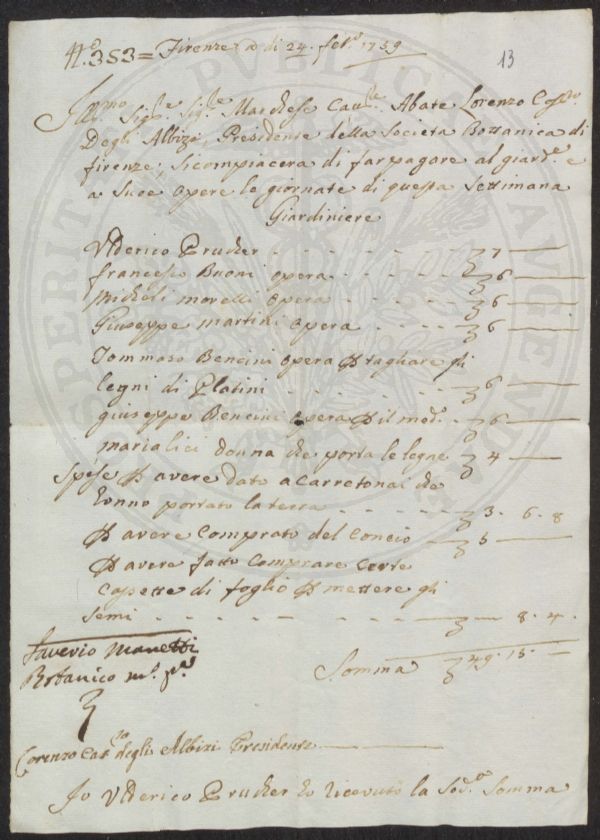 N.º 353 = Firenze a di 24. feb.º 1759
13
Ill.mo Sig.re Sig.re Marchese Cav.re Abate Lorenzo
Degli Albizi, Presidente della Societa Bottanica di
firenze; si compiacera di far pagare al giard.e e
a sue opere le giornate di questa Settimana
Giardiniere
Ulderico Prucker - - - - - - 7 —
francesco Buoni opera - - - - 6 —
Micheli morelli opera - - - - 6 —
Giuseppe martini opera - - - - 6 —
Tommaso Bencini opera p tagliare gli
legni di Platini - - - - - - 6 —
giuseppe Bencini opera p il med.º - 6 —
maria lici donna che porta le legne 4 —
Spese p avere dato a Carretonai che
hanno portato la terra - - - - 3. 6. 8
p avere Comprato del Concio - - 5 —
p avere fatto Comprare Certe
Casette di foglio p mettere gli
Semi - - - - - - — 8. 4.
Saverio Manetti
Botanico
Somma 49. 15. —
Lorenzo degli Albizi Presidente
Io Ulderico Prucker ho ricevuto la Sod.a Somma
SPERIT PUBLICAE AUGENDAE